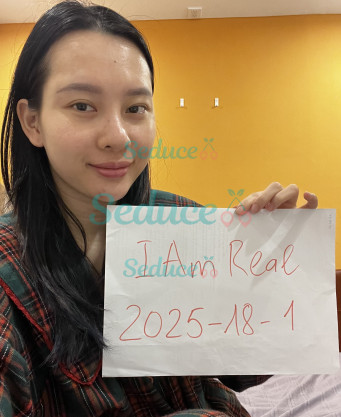 Seduce
Seduce
Seduce
Seduce
I Am Real
2025-18-1